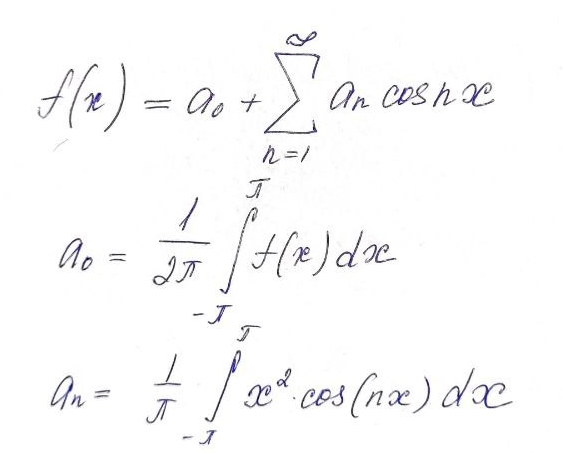 f(x) = a₀ + ∑_{n=1}^{∞} aₙ cos nx
a₀ = 1/(2π) ∫_{-π}^{π} f(x) dx
aₙ = 1/π ∫_{-π}^{π} x² · cos(nx) dx